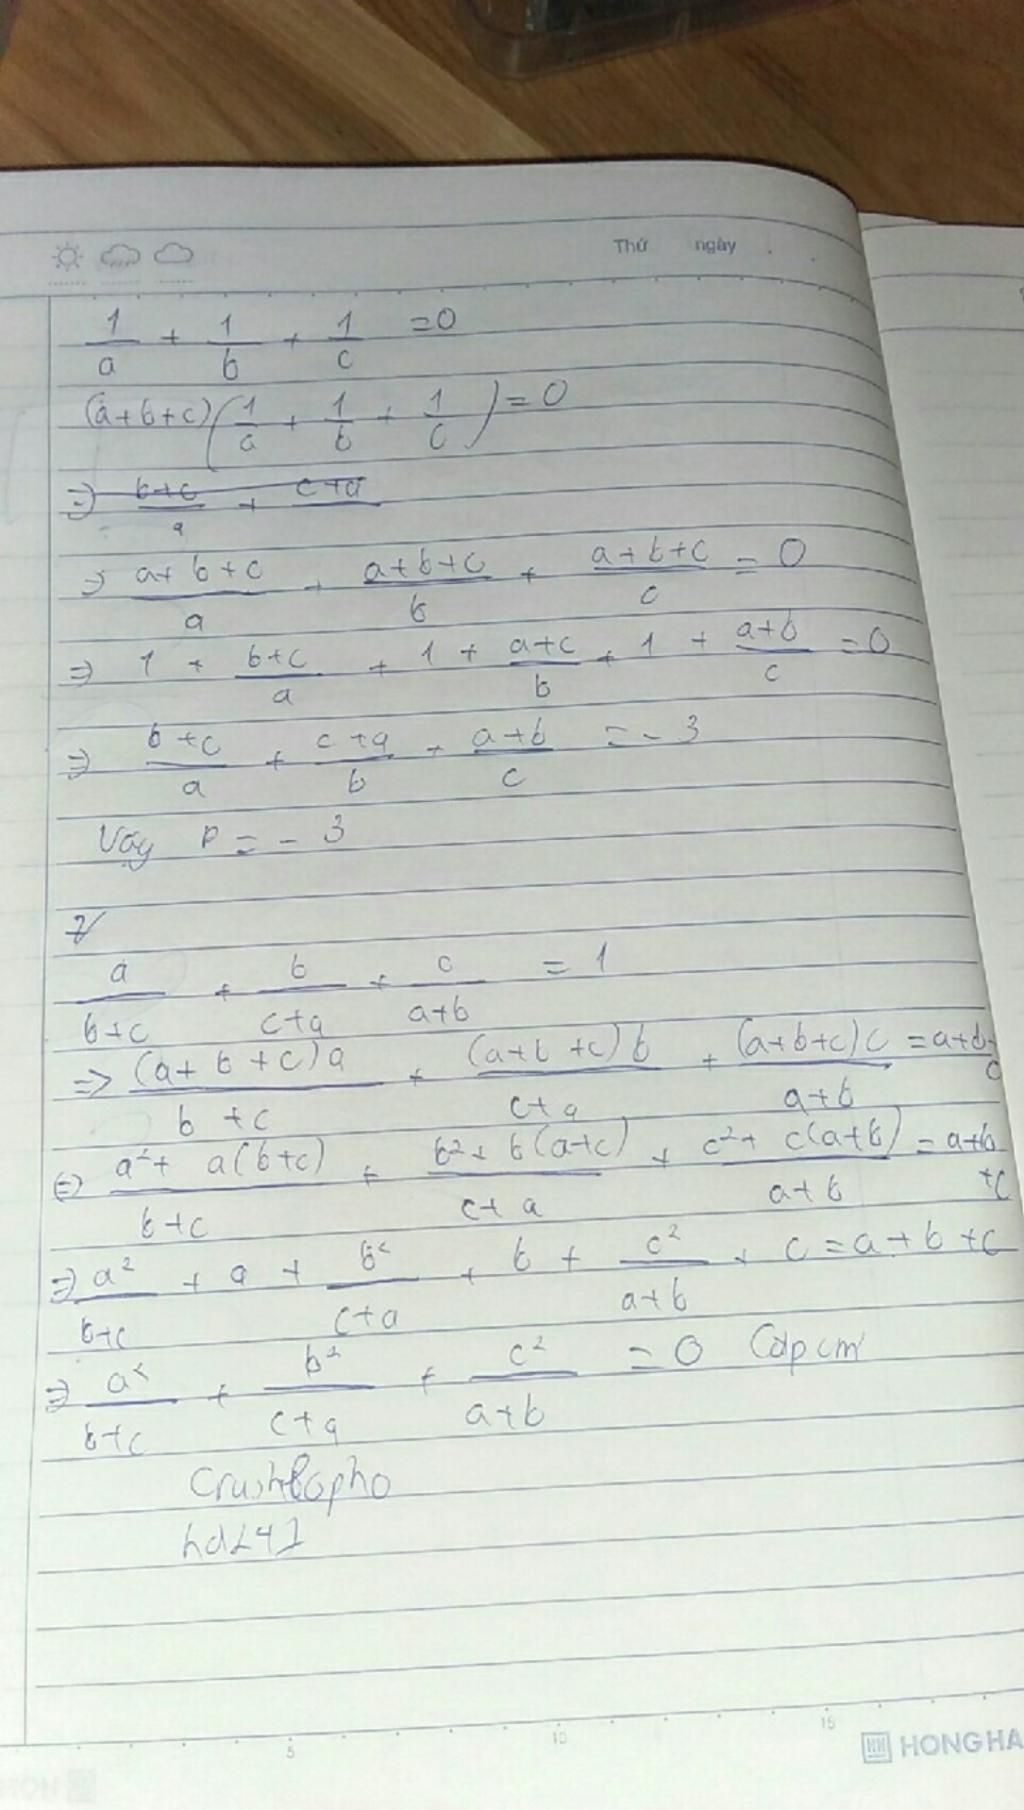 Thứ ngày
1/a + 1/b + 1/c = 0
(a+b+c)(1/a + 1/b + 1/c) = 0
=> (b+c)/a + c+a
=> (a+b+c)/a + (a+b+c)/b + (a+b+c)/c = 0
=> 1 + (b+c)/a + 1 + (a+c)/b + 1 + (a+b)/c = 0
=> (b+c)/a + (c+a)/b + (a+b)/c = -3
Vậy P = -3
2/
a/(b+c) + b/(c+a) + c/(a+b) = 1
=> (a+b+c)a/(b+c) + (a+b+c)b/(c+a) + (a+b+c)c/(a+b) = a+b+c
=> (a²+a(b+c))/(b+c) + (b²+b(a+c))/(c+a) + (c²+c(a+b))/(a+b) = a+b+c
=> a²/(b+c) + a + b²/(c+a) + b + c²/(a+b) + c = a+b+c
=> a²/(b+c) + b²/(c+a) + c²/(a+b) = 0 (đpcm
5 10 15
HONG HA